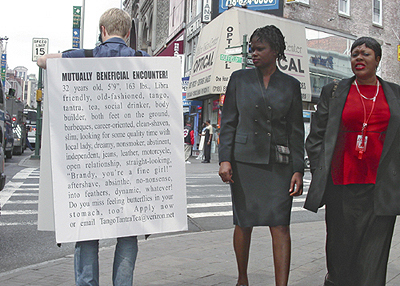 718-624-0000
SPEED
LIMIT
15
OPTICAL
OPTICAL
MUTUALLY BENEFICIAL ENCOUNTER!
32 years old, 5'9", 163 lbs, Libra
friendly, old-fashioned, tango,
tantra, tea, social drinker, body
builder, both feet on the ground,
barbeques, career-oriented, clean-shaven,
slim, looking for some quality time with
local lady, dreamy, nonsmoker, abtinent,
independent, jeans, leather, motorcycle,
open relationship, straight-looking,
"Brandy, you're a fine girl"
aftershave, absinthe, no-nonsense,
into feathers, dynamic, whatever!
Do you miss feeling butterflies in your
stomach, too? Apply now
or email TangoTantraTea@verizon.net